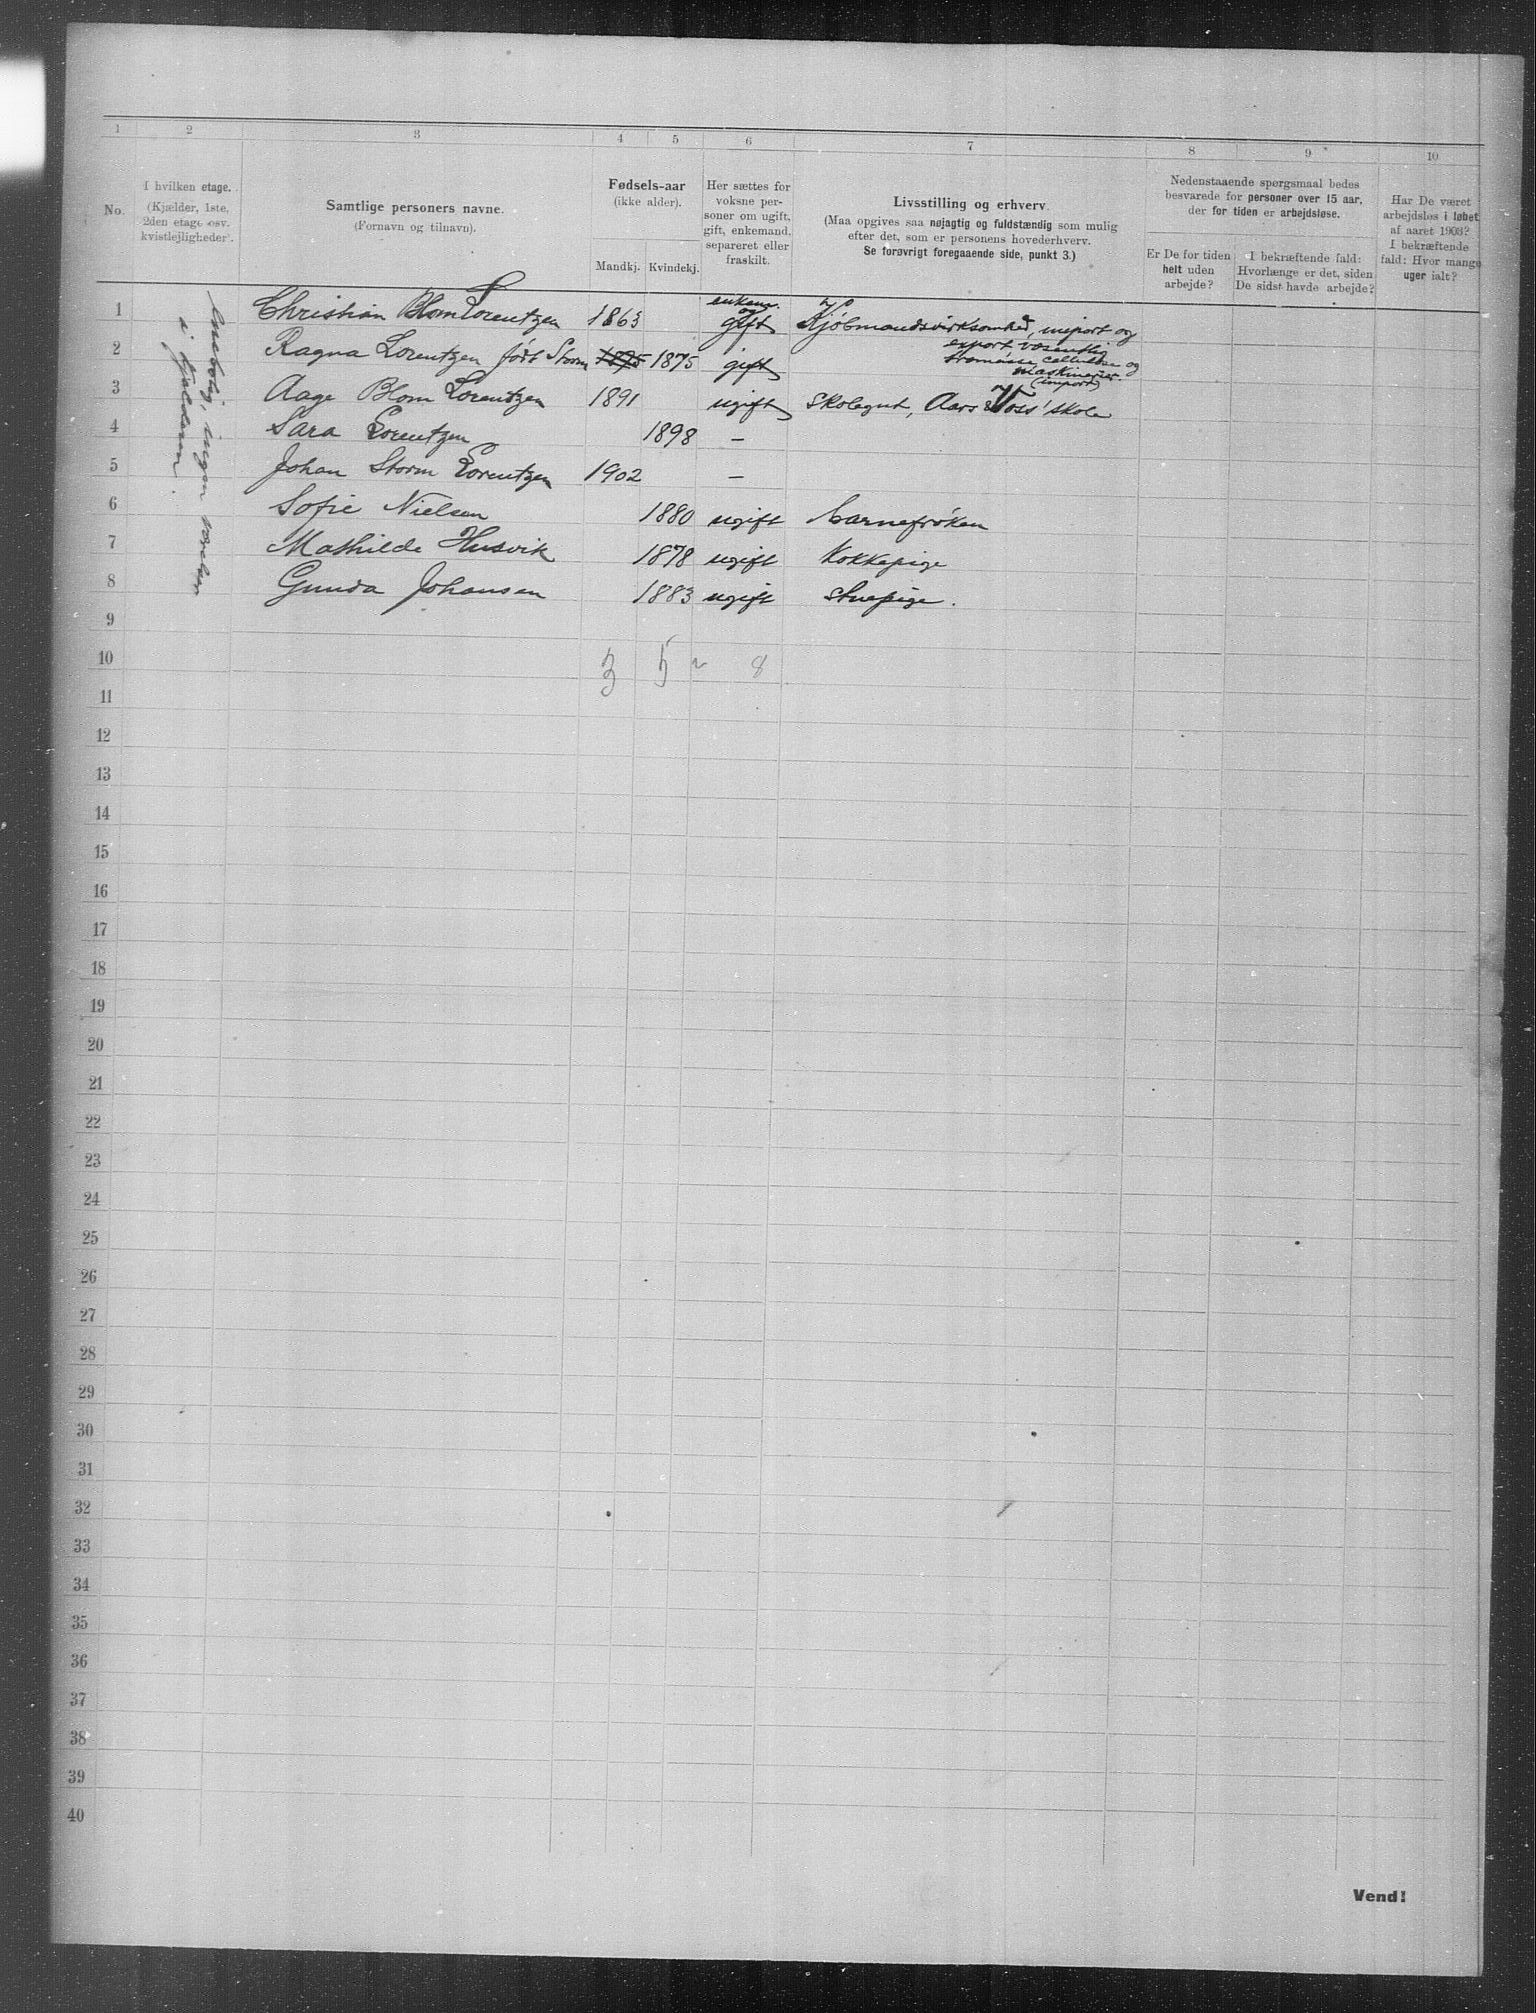 1 2 3 4 5 6 7 8 9 10
No.
I hvilken etage.
(Kjælder, 1ste,
2den etage osv.
kvistlejligheder).
Samtlige personers navne.
(Fornavn og tilnavn).
Fødsels-aar
(ikke alder).
Mandkj. Kvindekj.
Her sættes for
voksne per-
soner om ugift,
gift, enkemand,
separeret eller
fraskilt.
Livsstilling og erhverv.
(Maa opgives saa nøjagtig og fuldstændig som mulig
efter det, som er personens hovederhverv.
Se forøvrigt foregaaende side, punkt 3.)
Nedenstaaende spørgsmaal bedes
besvarede for personer over 15 aar,
der for tiden er arbejdsløse.
Er De for tiden
helt uden
arbejde?
I bekræftende fald:
Hvorlænge er det, siden
De sidst havde arbejde?
Har De været
arbejdsløs i løbet
af aaret 1903?
I bekræftende
fald: Hvor mange
uger ialt?
Enebolig, ingen værelser
i kjelderen.
1 Christian Blom Lorentzen 1863 enkem. og gift Kjøbmandsvirksomhed, import og
export væsentlig
træmasse, cellulose og
maskinerier
(import)
2 Ragna Lorentzen født Storm 1875 1875 gift
3 Aage Blom Lorentzen 1891 ugift Skolegut, Aars & Voss' skole
4 Sara Lorentzen 1898 —
5 Johan Storm Lorentzen 1902 —
6 Sofie Nielsen 1880 ugift barnefrøken
7 Mathilde Husvik 1878 ugift Kokkepige
8 Gunda Johansen 1883 ugift Stuepige.
9
10 3 5 ~ 8
11
12
13
14
15
16
17
18
19
20
21
22
23
24
25
26
27
28
29
30
31
32
33
34
35
36
37
38
39
40
Vend!